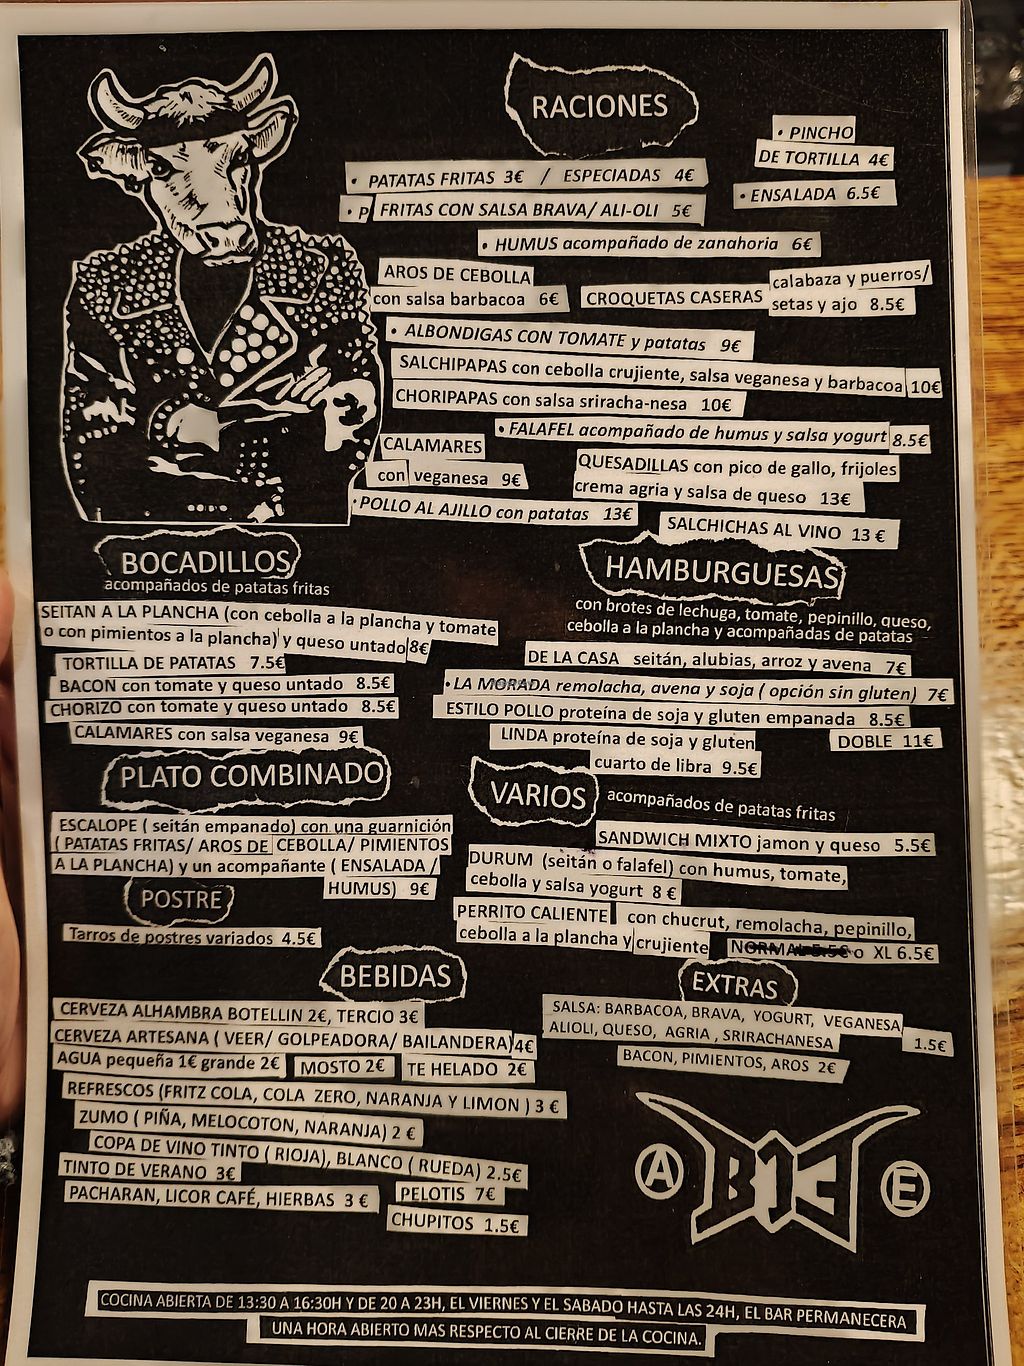 RACIONES
• PINCHO
DE TORTILLA 4€
• PATATAS FRITAS 3€ / ESPECIADAS 4€
• ENSALADA 6.5€
• P FRITAS CON SALSA BRAVA/ ALI-OLI 5€
• HUMUS acompañado de zanahoria 6€
AROS DE CEBOLLA
con salsa barbacoa 6€
CROQUETAS CASERAS
calabaza y puerros/
setas y ajo 8.5€
• ALBONDIGAS CON TOMATE y patatas 9€
SALCHIPAPAS con cebolla crujiente, salsa veganesa y barbacoa 10€
CHORIPAPAS con salsa sriracha-nesa 10€
• FALAFEL acompañado de humus y salsa yogurt 8.5€
CALAMARES
con veganesa 9€
QUESADILLAS con pico de gallo, frijoles
crema agria y salsa de queso 13€
• POLLO AL AJILLO con patatas 13€
SALCHICHAS AL VINO 13 €
BOCADILLOS
acompañados de patatas fritas
SEITAN A LA PLANCHA (con cebolla a la plancha y tomate
o con pimientos a la plancha) y queso untado 8€
TORTILLA DE PATATAS 7.5€
BACON con tomate y queso untado 8.5€
CHORIZO con tomate y queso untado 8.5€
CALAMARES con salsa veganesa 9€
HAMBURGUESAS
con brotes de lechuga, tomate, pepinillo, queso,
cebolla a la plancha y acompañadas de patatas
DE LA CASA seitán, alubias, arroz y avena 7€
• LA MORADA remolacha, avena y soja ( opción sin gluten) 7€
ESTILO POLLO proteína de soja y gluten empanada 8.5€
LINDA proteína de soja y gluten
cuarto de libra 9.5€
DOBLE 11€
PLATO COMBINADO
ESCALOPE ( seitán empanado) con una guarnición
( PATATAS FRITAS/ AROS DE CEBOLLA/ PIMIENTOS
A LA PLANCHA) y un acompañante ( ENSALADA /
HUMUS) 9€
VARIOS
acompañados de patatas fritas
SANDWICH MIXTO jamon y queso 5.5€
DURUM (seitán o falafel) con humus, tomate,
cebolla y salsa yogurt 8 €
PERRITO CALIENTE con chucrut, remolacha, pepinillo,
cebolla a la plancha y crujiente NORMAL 5.5€ o XL 6.5€
POSTRE
Tarros de postres variados 4.5€
BEBIDAS
CERVEZA ALHAMBRA BOTELLIN 2€, TERCIO 3€
CERVEZA ARTESANA ( VEER/ GOLPEADORA/ BAILANDERA) 4€
AGUA pequeña 1€ grande 2€
MOSTO 2€
TE HELADO 2€
REFRESCOS (FRITZ COLA, COLA ZERO, NARANJA Y LIMON ) 3 €
ZUMO ( PIÑA, MELOCOTON, NARANJA) 2 €
COPA DE VINO TINTO ( RIOJA), BLANCO ( RUEDA) 2.5€
TINTO DE VERANO 3€
PACHARAN, LICOR CAFÉ, HIERBAS 3 €
PELOTIS 7€
CHUPITOS 1.5€
EXTRAS
SALSA: BARBACOA, BRAVA, YOGURT, VEGANESA
ALIOLI, QUESO, AGRIA , SRIRACHANESA 1.5€
BACON, PIMIENTOS, AROS 2€
A B13 E
COCINA ABIERTA DE 13:30 A 16:30H Y DE 20 A 23H, EL VIERNES Y EL SABADO HASTA LAS 24H, EL BAR PERMANECERA
UNA HORA ABIERTO MAS RESPECTO AL CIERRE DE LA COCINA.